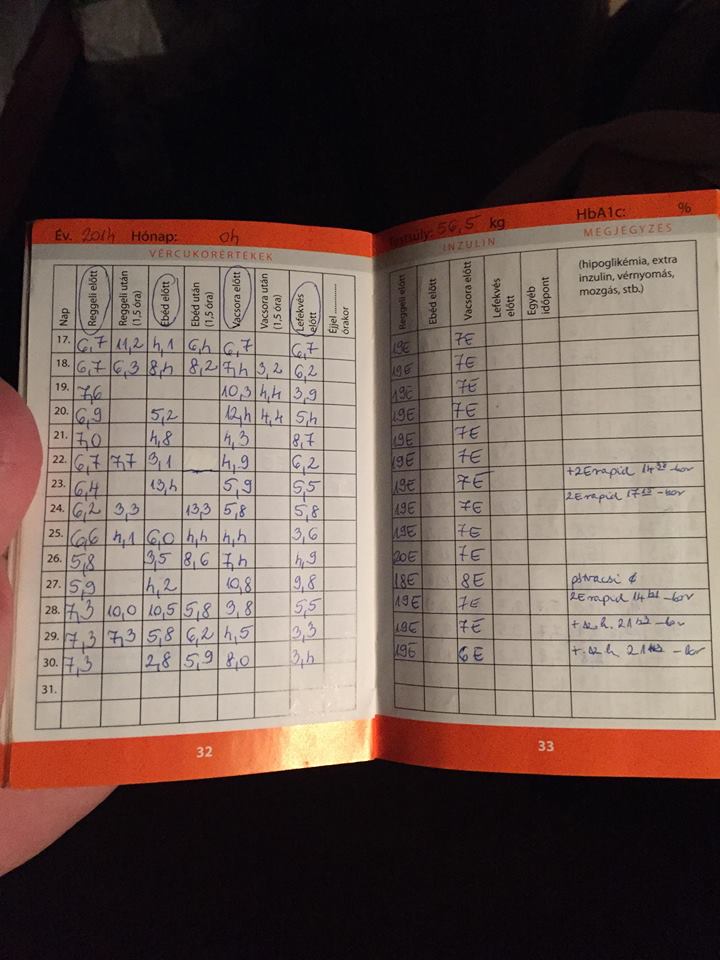 Év. 2014 Hónap: 04
VÉRCUKORÉRTÉKEK
Nap Reggeli előtt Reggeli után (1,5 óra) Ebéd előtt Ebéd után (1,5 óra) Vacsora előtt Vacsora után (1,5 óra) Lefekvés előtt Éjjel............ órakor
17. 6,7 11,2 4,1 6,4 6,7 6,7
18. 6,7 6,3 8,4 8,2 7,4 3,2 6,2
19. 7,6 10,3 4,4 3,9
20. 6,9 5,2 12,4 4,4 5,4
21. 7,0 4,8 4,3 8,7
22. 6,7 7,7 3,1 4,9 6,2
23. 6,4 13,4 5,9 5,5
24. 6,2 3,3 13,3 5,8 5,8
25. 6,6 4,1 6,0 4,4 4,4 3,6
26. 5,8 3,5 8,6 7,4 4,9
27. 5,9 4,2 10,8 9,8
28. 7,3 10,0 10,5 5,8 9,8 5,5
29. 7,3 7,3 5,8 6,2 4,5 3,3
30. 7,3 2,8 5,9 8,0 3,4
31.
32
Testsúly: 56,5 kg HbA1c: %
INZULIN MEGJEGYZÉS
Reggeli előtt Ebéd előtt Vacsora előtt Lefekvés előtt Egyéb időpont (hipoglikémia, extra inzulin, vérnyomás, mozgás, stb.)
19E 7E
19E 7E
19E 7E
19E 7E
19E 7E
19E 7E
19E 7E +2E rapid 14 -kor
19E 7E 2E rapid 17 -kor
19E 7E
20E 7E
18E 8E
19E 7E 2E rapid 14 -kor
19E 7E 21 -kor
19E 6E 21 -kor
33